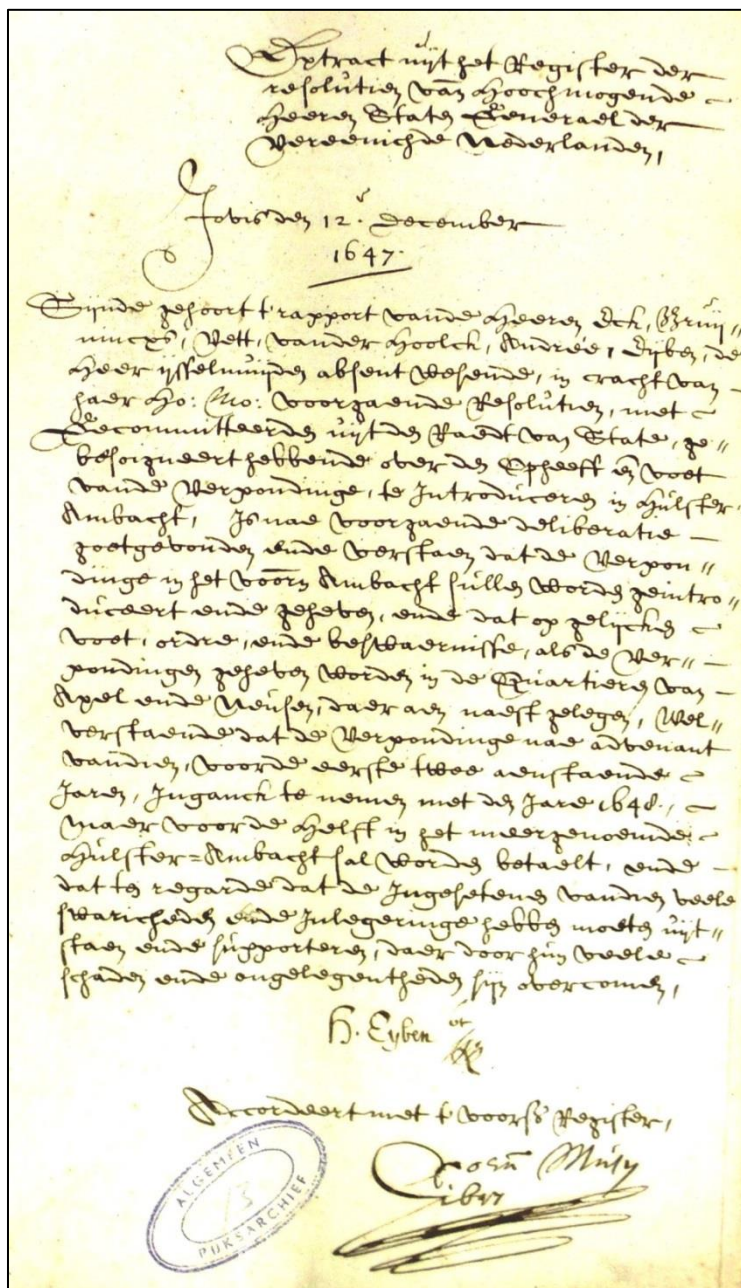 Extract uÿt het Register der
resolutien van Hoochmogende
Heeren Staten Generael der
Vereenichde Nederlanden,
Jovis den 12. december
1647.
Sijnde gehoort t'rapport vande Heeren Eck, Bruij„
nincxs, Vett, vander Hoolck, Andrée, Eyben, de
Heer ijsselmuÿden absent wesende, in cracht van
haer Ho: Mo: voorgaende Resolutien, met
Gecommitteerden uÿt den Raedt van State, ge„
besoigneert hebbende over den Opheeff en voet
vande Verpondinge, te Introduceren in Hulster
Ambacht, Is nae voorgaende deliberatie
goetgevonden ende verstaen dat de Verpon„
dinge in het voorn Ambacht sullen worden geintro„
duceert ende geheven, ende dat op gelijcken
voet, ordre, ende beswaernisse, als de Ver„
pondingen geheven worden in de Quartieren van
Axel ende Neusen, daer aen naest gelegen, Wel„
verstaende dat de Verpondinge nae advenant
vandien, voor de eerste twee aenstaende
Jaren, Inganck te nemen met den Jare 1648.,
maer voor de Helft in het meergenoemde
Hulster=Ambacht sal worden betaelt, ende
dat ten regarde dat de Ingesetenen vandien veele
swaricheden ende Inlegeringe hebben moeten uÿt„
staen ende supporteren, daer door hun veele
schaden ende ongelegentheden sijn overcomen,
H. Eyben
Accordeert met t' voors Register,
Musch
ALGEMEEN
13
RIJKSARCHIEF